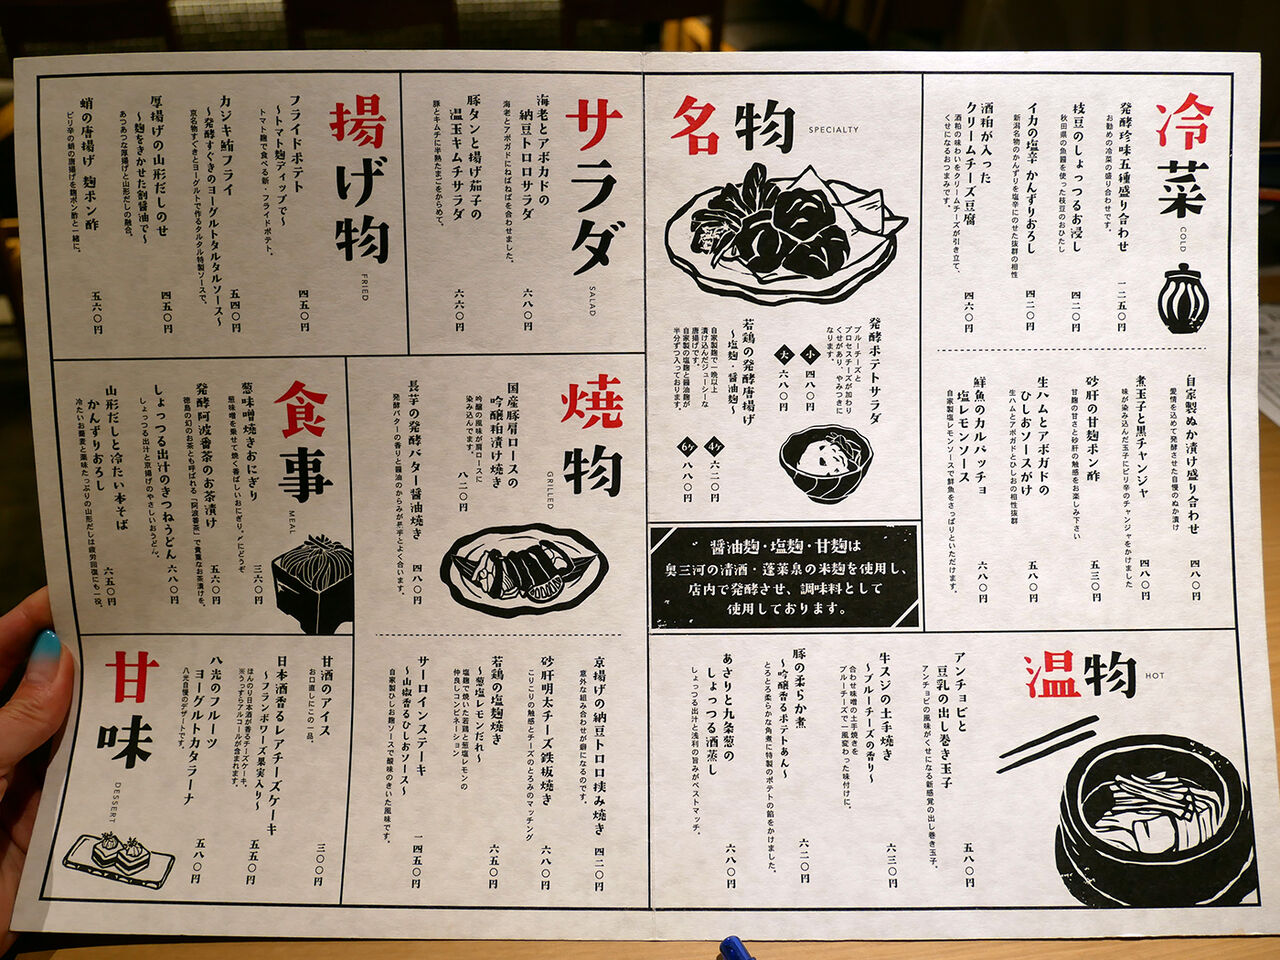 冷菜
COLD
発酵珍味五種盛り合わせ
お勧めの冷菜の盛り合わせです。
一二五〇円
枝豆のしょっつるお浸し
秋田県の魚醤を使った枝豆のおひたし
四二〇円
イカの塩辛 かんずりおろし
新潟名物のかんずりを塩辛にのせた抜群の相性
四二〇円
酒粕が入った
クリームチーズ豆腐
酒粕の味わいをクリームチーズが引き立て、
くせになるおつまみです。
四六〇円
自家製ぬか漬け盛り合わせ
愛情を込めて発酵させた自慢のぬか漬け
四八〇円
煮玉子と黒チャンジャ
味が染み込んだ玉子にピリ辛のチャンジャをかけました
四八〇円
砂肝の甘麹ポン酢
甘麹の甘さと砂肝の触感をお楽しみ下さい
五三〇円
生ハムとアボガドの
ひしおソースがけ
生ハムとアボガドとひしおの相性抜群
五八〇円
鮮魚のカルパッチョ
塩レモンソース
自家製塩レモンソースで鮮魚をさっぱりといただけます。
六八〇円
名物
SPECIALTY
発酵ポテトサラダ
ブルーチーズと
プロセスチーズが加わり
くせがあり、やみつきに
なります。
小 四八〇円
大 六八〇円
若鶏の発酵唐揚げ
〜塩麹・醤油麹〜
自家製麹で一晩以上
漬け込んだジューシーな
唐揚げです。
自家製の塩麹と醤油麹が
半分ずつ入っております。
4ケ 六二〇円
6ケ 八八〇円
醤油麹・塩麹・甘麹は
奥三河の清酒・蓬莱泉の米麹を使用し、
店内で発酵させ、調味料として
使用しております。
温物
HOT
アンチョビと
豆乳の出し巻き玉子
アンチョビの風味がくせになる新感覚の出し巻き玉子。
五八〇円
牛スジの土手焼き
〜ブルーチーズの香り〜
合わせ味噌の土手焼きを
ブルーチーズで一風変わった味付けに。
六三〇円
豚の柔らか煮
〜吟醸香るポテトあん〜
とろとろ柔らかな角煮に特製のポテトの餡をかけました。
六二〇円
あさりと九条葱の
しょっつる酒蒸し
しょっつる出汁と浅利の旨みがベストマッチ。
六八〇円
サラダ
SALAD
海老とアボカドの
納豆トロロサラダ
海老とアボガドにねばねばを合わせました。
六八〇円
豚タンと揚げ茄子の
温玉キムチサラダ
豚とキムチに半熟たまごをからめて。
六六〇円
揚げ物
FRIED
フライドポテト
〜トマト麹ディップで〜
トマト麹で食べる新・フライドポテト。
四五〇円
カジキ鮪フライ
〜発酵すぐきのヨーグルトタルタルソース〜
京名物すぐきとヨーグルトで作るタルタル特製ソースで。
五四〇円
厚揚げの山形だしのせ
〜麹をきかせた割醤油で〜
あつあつな厚揚げと山形だしの融合。
四五〇円
蛸の唐揚げ 麹ポン酢
ピリ辛の蛸の唐揚げを麹ポン酢と一緒に。
五六〇円
焼物
GRILLED
国産豚肩ロースの
吟醸粕漬け焼き
吟醸の風味が肩ロースに
染み込んでます。
八二〇円
長芋の発酵バター醤油焼き
発酵バターの香りと醤油のからみが長芋とよく合います。
四八〇円
京揚げの納豆トロロ挟み焼き
意外な組み合わせが癖になるのです。
四二〇円
砂肝明太チーズ鉄板焼き
こりこりの触感とチーズのとろみのマッチング
六八〇円
若鶏の塩麹焼き
〜葱塩レモンだれ〜
塩麹で焼いた若鶏と葱塩レモンの
仲良しコンビネーション
六五〇円
サーロインステーキ
〜山椒香るひしおソース〜
自家製ひしお麹ソースで酸味のきいた風味です。
一四五〇円
食事
MEAL
葱味噌焼きおにぎり
葱味噌を乗せて焼く香ばしいおにぎり。〆にどうぞ
三六〇円
発酵阿波番茶のお茶漬け
徳島の幻のお茶とも呼ばれる「阿波番茶」で貴重なお茶漬けを。
五六〇円
しょっつる出汁のきつねうどん
しょっつる出汁と京揚げのやさしいおうどん。
六八〇円
山形だしと冷たい本そば
かんずりおろし
冷たいお蕎麦と薬味たっぷりの山形だしは疲労回復にも一役。
六五〇円
甘味
DESSERT
甘酒のアイス
お口直しにこの一品。
三〇〇円
日本酒香るレアチーズケーキ
〜フランボワーズ果実入り〜
ほんのり日本酒が香るチーズケーキ。
※うっすらアルコールが含まれます。
五五〇円
八光のフルーツ
ヨーグルトカタラーナ
八光自慢のデザートです。
五八〇円